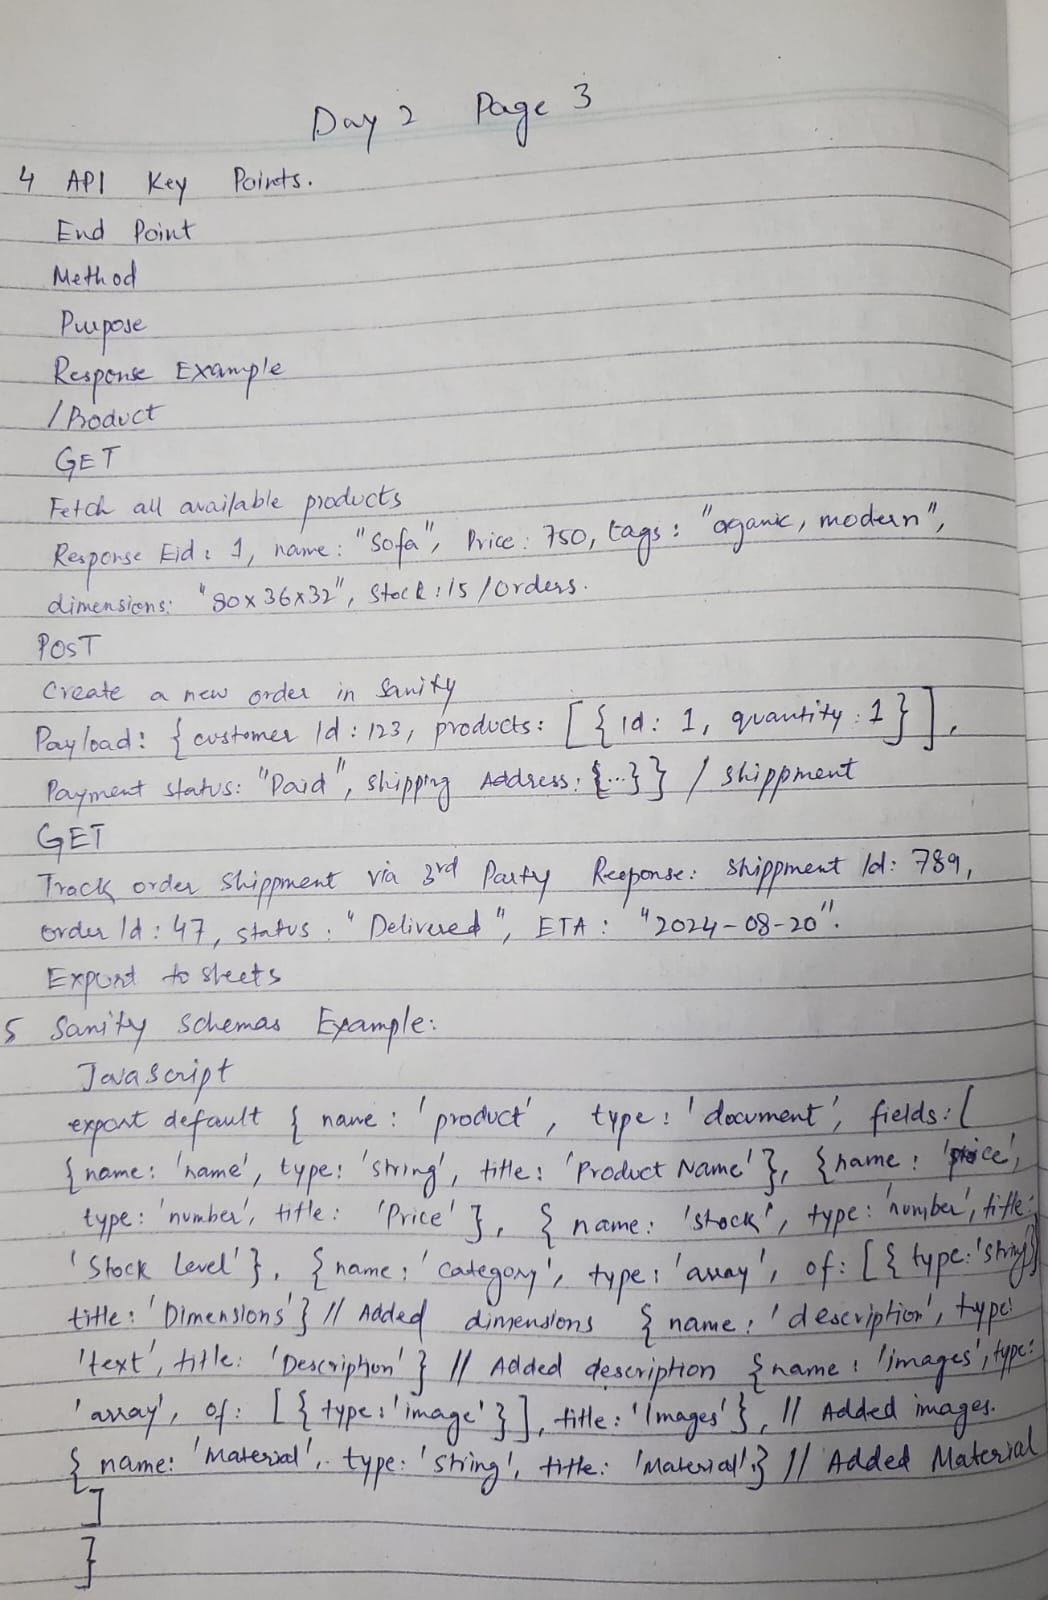 Day 2 Page 3
4 API Key Points.
End Point
Method
Purpose
Response Example
/Product
GET
Fetch all available products
Response Eid: 1, name: "Sofa", Price: 750, tags: "oganic, modern",
dimensions: "80x36x32", Stock:15 /orders.
POST
Create a new order in Sanity
Payload: { customer Id: 123, products: [{ id: 1, quantity: 1}],
Payment status: "Paid", shipping Address: {...}} / shippment
GET
Track order shippment via 3rd Party Response: shippment Id: 789,
order Id: 47, status: "Delivered", ETA: "2024-08-20".
Export to sheets
5 Sanity schemas Example:
Javascript
export default { name: 'product', type: 'document', fields: [
{ name: 'name', type: 'string', title: 'Product Name' }, { name: 'price',
type: 'number', title: 'Price' }, { name: 'stock', type: 'number', title:
'Stock Level' }, { name: 'category', type: 'array', of: [{ type: 'string'}
title: 'Dimensions' } // Added dimensions { name: 'description', type:
'text', title: 'Description' } // Added description { name: 'images', type:
'array', of: [{ type: 'image' }], title: 'Images' }, // Added images.
{ name: 'Material', type: 'string', title: 'Material' } // Added Material
]
}